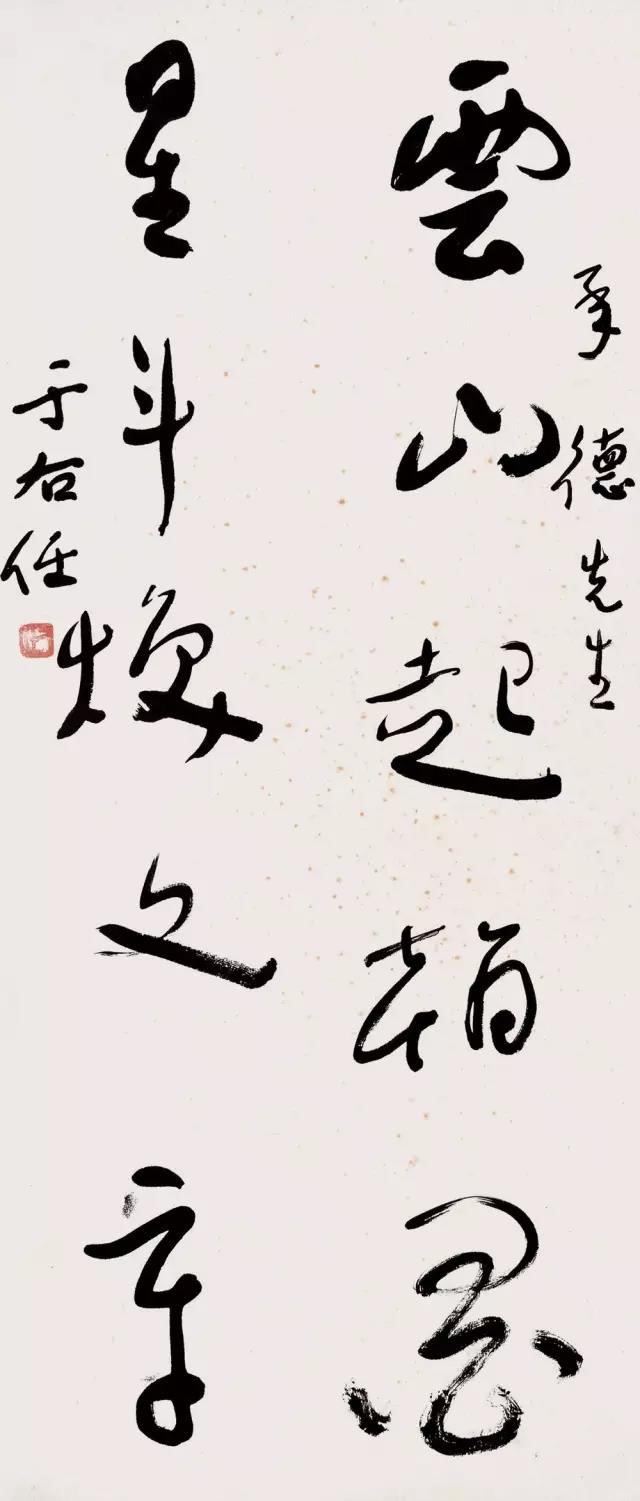 承德先生
雲山起翰墨
星斗煥文章
于右任